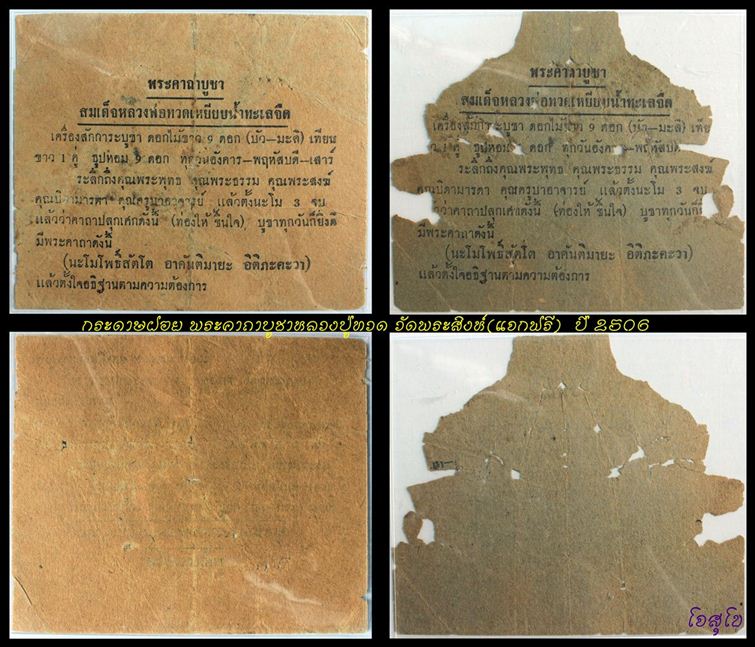 พระคาถาบูชา
สมเด็จหลวงพ่อทวดเหยียบน้ำทะเลจืด
เครื่องสักการะบูชา ดอกไม้ขาว 9 ดอก (บัว—มะลิ) เทียน
ขาว 1 คู่ ธูปหอม 9 ดอก ทุกวันอังคาร—พฤหัสบดี—เสาร์
ระลึกถึงคุณพระพุทธ คุณพระธรรม คุณพระสงฆ์
คุณบิดามารดา คุณครูบาอาจารย์ แล้วตั้งนะโม 3 จบ
แล้วว่าคาถาปลุกเศกดังนี้ (ท่องให้ขึ้นใจ) บูชาทุกวันก็ยิ่งดี
มีพระคาถาดังนี้
(นะโมโพธิสัตโต อาคันติมายะ อิติภะคะวา)
แล้วตั้งใจอธิฐานตามความต้องการ
พระคาถาบูชา
สมเด็จหลวงพ่อทวดเหยียบน้ำทะเลจืด
เครื่องสักการะบูชา ดอกไม้ขาว 9 ดอก (บัว—มะลิ) เทีย
1 คู่ ธูปหอม 9 ดอก ทุกวันอังคาร—พฤหัสบดี
ระลึกถึงคุณพระพุทธ คุณพระธรรม คุณพระสงฆ์
คุณบิดามารดา คุณครูบาอาจารย์ แล้วตั้งนะโม 3 จบ
ว่าคาถาปลุกเศกดังนี้ (ท่องให้ขึ้นใจ) บูชาทุกวันก็ยิ่งดี
มีพระคาถาดังนี้
(นะโมโพธิสัตโต อาคันติมายะ อิติภะคะวา)
แล้วตั้งใจอธิฐานตามความต้องการ
กระดาษฝอย พระคาถาบูชาหลวงปู่ทวด วัดพระสิงห์(แจกฟรี) ปี 2506
โอสุโข